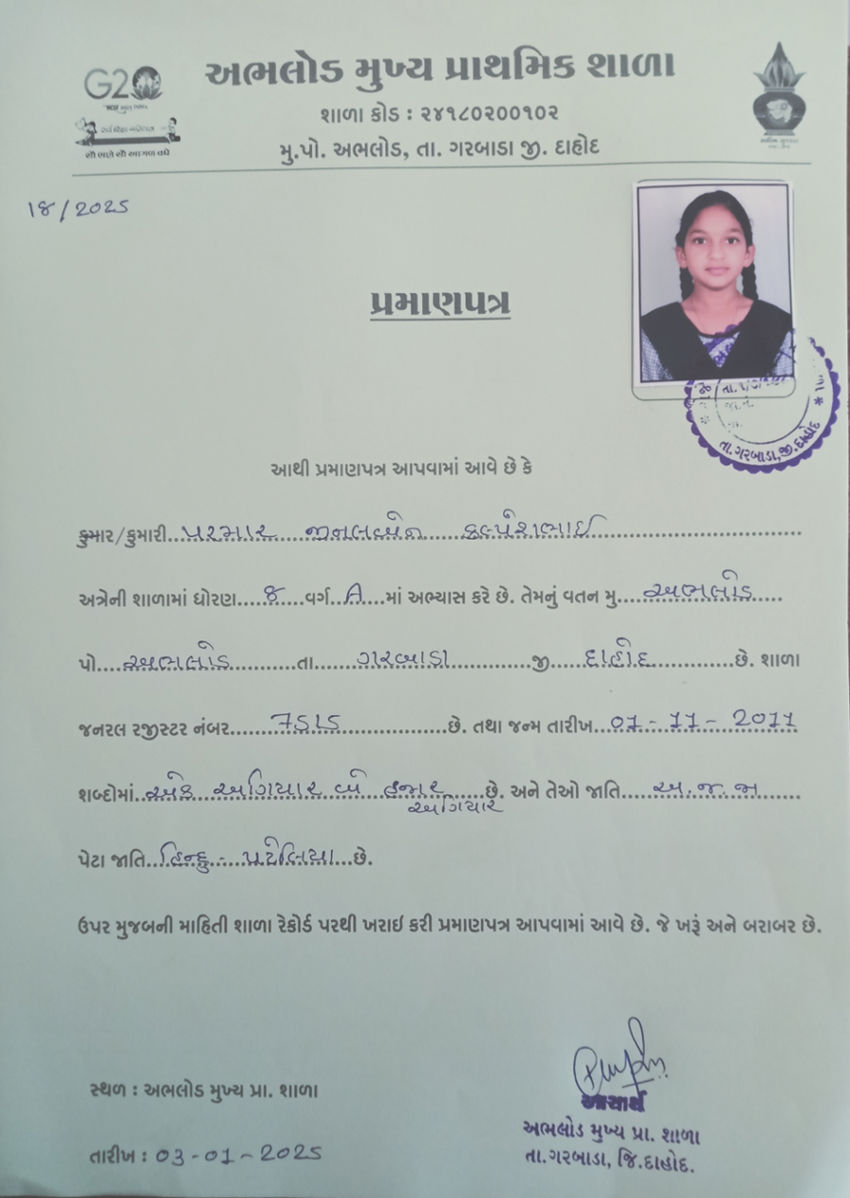 અભલોડ મુખ્ય પ્રાથમિક શાળા
શાળા કોડ : ૨૪૧૮૦૨૦૦૧૦૨
મુ.પો. અભલોડ, તા. ગરબાડા જી. દાહોદ
G20
સૌ ભણે સૌ આગળ વધે
18/2025
પ્રમાણપત્ર
તા.ગરબાડા,જી.દાહોદ
આથી પ્રમાણપત્ર આપવામાં આવે છે કે
કુમાર/કુમારી..પરમાર જીનલબેન કલ્પેશભાઈ
અત્રેની શાળામાં ધોરણ....8....વર્ગ..A....માં અભ્યાસ કરે છે. તેમનું વતન મુ....અભલોડ.....
પો....અભલોડ..........તા......ગરબાડા............જી.....દાહોદ............છે. શાળા
જનરલ રજીસ્ટર નંબર......7515................છે. તથા જન્મ તારીખ..01-11-2011
શબ્દોમાં..એક અગિયાર બે હજાર અગિયાર......છે. અને તેઓ જાતિ.....અ.જ.જા......
પેટા જાતિ..હિન્દુ-પટેલિયા...છે.
ઉપર મુજબની માહિતી શાળા રેકોર્ડ પરથી ખરાઇ કરી પ્રમાણપત્ર આપવામાં આવે છે. જે ખરૂં અને બરાબર છે.
સ્થળ : અભલોડ મુખ્ય પ્રા. શાળા
તારીખ : 03-01-2025
આચાર્ય
અભલોડ મુખ્ય પ્રા. શાળા
તા.ગરબાડા, જિ.દાહોદ.